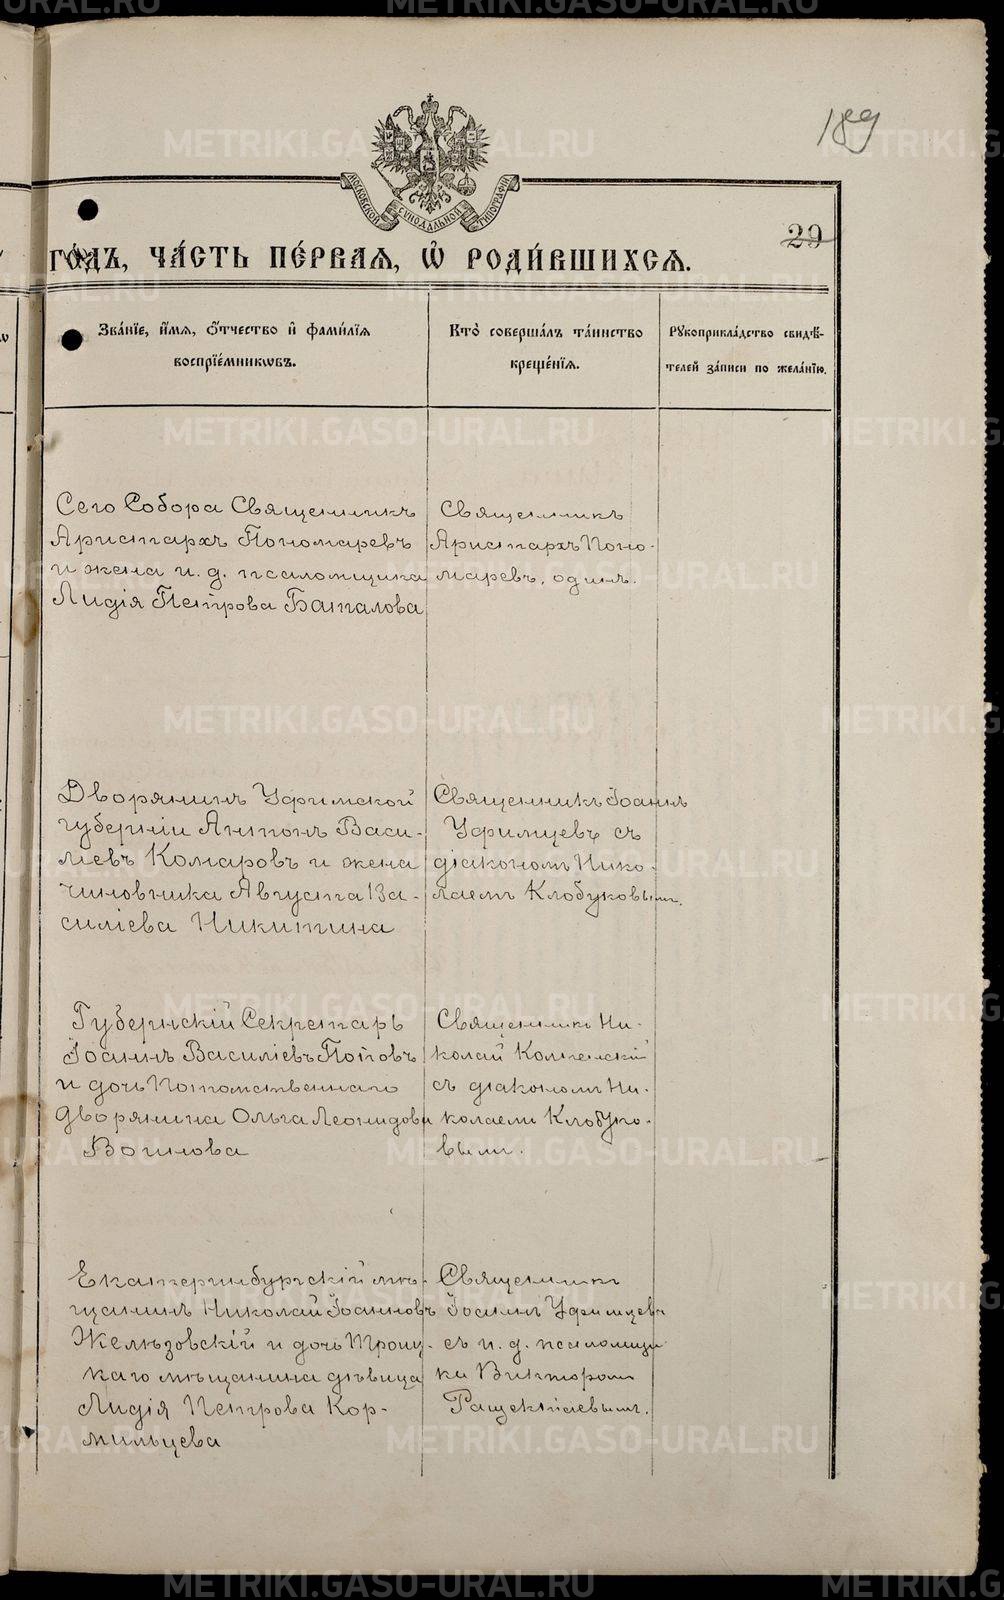 189
МОСКОВСКОЙ СѴНОДАЛЬНОЙ ТИПОГРАФИИ
29
ГО́ДЪ, ЧА́СТЬ ПЕ́РВАѦ, Ѡ҆ РОДИ́ВШИХСѦ.
Зва́нїе, и҆́мѧ, ѻ҆́тчество и҆ фами́лїѧ
воспрїе́мникѡвъ.
Кто̀ соверша́лъ та́инство
креще́нїѧ.
Рꙋкоприкла́дство свидѣ́-
телей за́писи по жела́нїю.
Сего Собора Священникъ
Аристархъ Пономаревъ
и жена и. д. псаломщика
Лидія Петрова Баталова
Священникъ
Аристархъ Поно-
маревъ, одинъ.
Дворянинъ Уфимской
губерніи Антонъ Васи-
ліевъ Комаровъ и жена
чиновника Августа Ва-
силіева Никитина
Священникъ Іоаннъ
Уфимцевъ съ
діакономъ Нико-
лаемъ Клобуковымъ.
Губернскій Секретарь
Іоаннъ Василіевъ Поповъ
и дочь потомственнаго
дворянина Ольга Леонидова
Воинова
Священникъ Ни-
колай
съ діакономъ Ни-
колаемъ Клобуко-
вымъ.
Екатеринбургскій мѣ-
щанинъ Николай Іоанновъ
Желѣзовскій и дочь Троиц-
каго мѣщанина дѣвица
Лидія Петрова Кор-
мильцева
Священникъ
Іоаннъ Уфимцевъ
съ и. д. псаломщи-
ка Викторомъ
METRIKI.GASO-URAL.RU